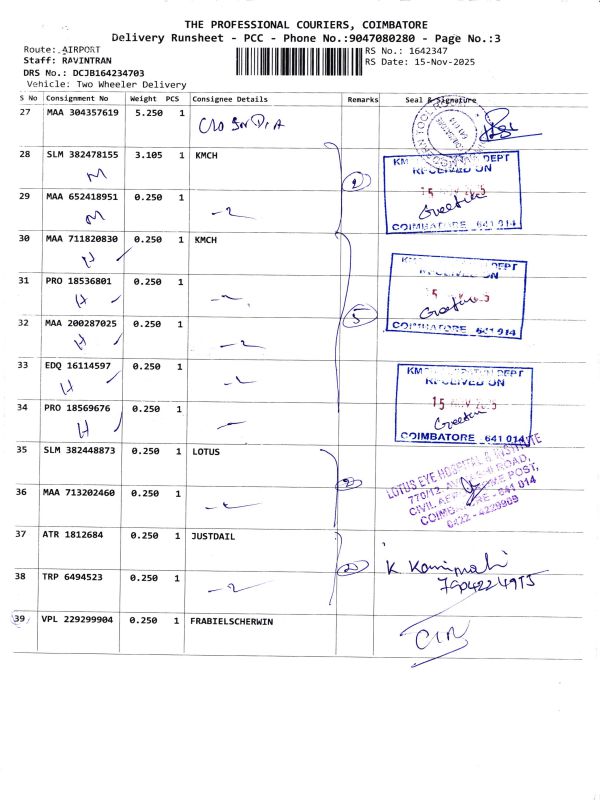 THE PROFESSIONAL COURIERS, COIMBATORE
Delivery Runsheet - PCC - Phone No.:9047080280 - Page No.:3
Route: AIRPORT
RS No.: 1642347
Staff: RAVINTRAN
RS Date: 15-Nov-2025
DRS No.: DCJB164234703
Vehicle: Two Wheeler Delivery
S No Consignment No Weight PCS Consignee Details Remarks Seal & Signature
27 MAA 304357619 5.250 1
28 SLM 382478155 3.105 1 KMCH
M
RECEIVED ON
Greetika
COIMBATORE 641 014
29 MAA 652418951 0.250 1
M
2
30 MAA 711820830 0.250 1 KMCH
H
31 PRO 18536801 0.250 1
H
Greetika
COIMBATORE 641 014
32 MAA 200287025 0.250 1
H
5
33 EDQ 16114597 0.250 1
H
RECEIVED ON
34 PRO 18569676 0.250 1
H
COIMBATORE 641 014
35 SLM 382448873 0.250 1 LOTUS
LOTUS EYE HOSPITAL & INSTITUTE
770/12, ROAD,
CIVIL POST,
COIMBATORE - 641 014
0422 - 4229999
36 MAA 713202460 0.250 1
2
37 ATR 1812684 0.250 1 JUSTDAIL
K
38 TRP 6494523 0.250 1
2
39 VPL 229299904 0.250 1 FRABIELSCHERWIN